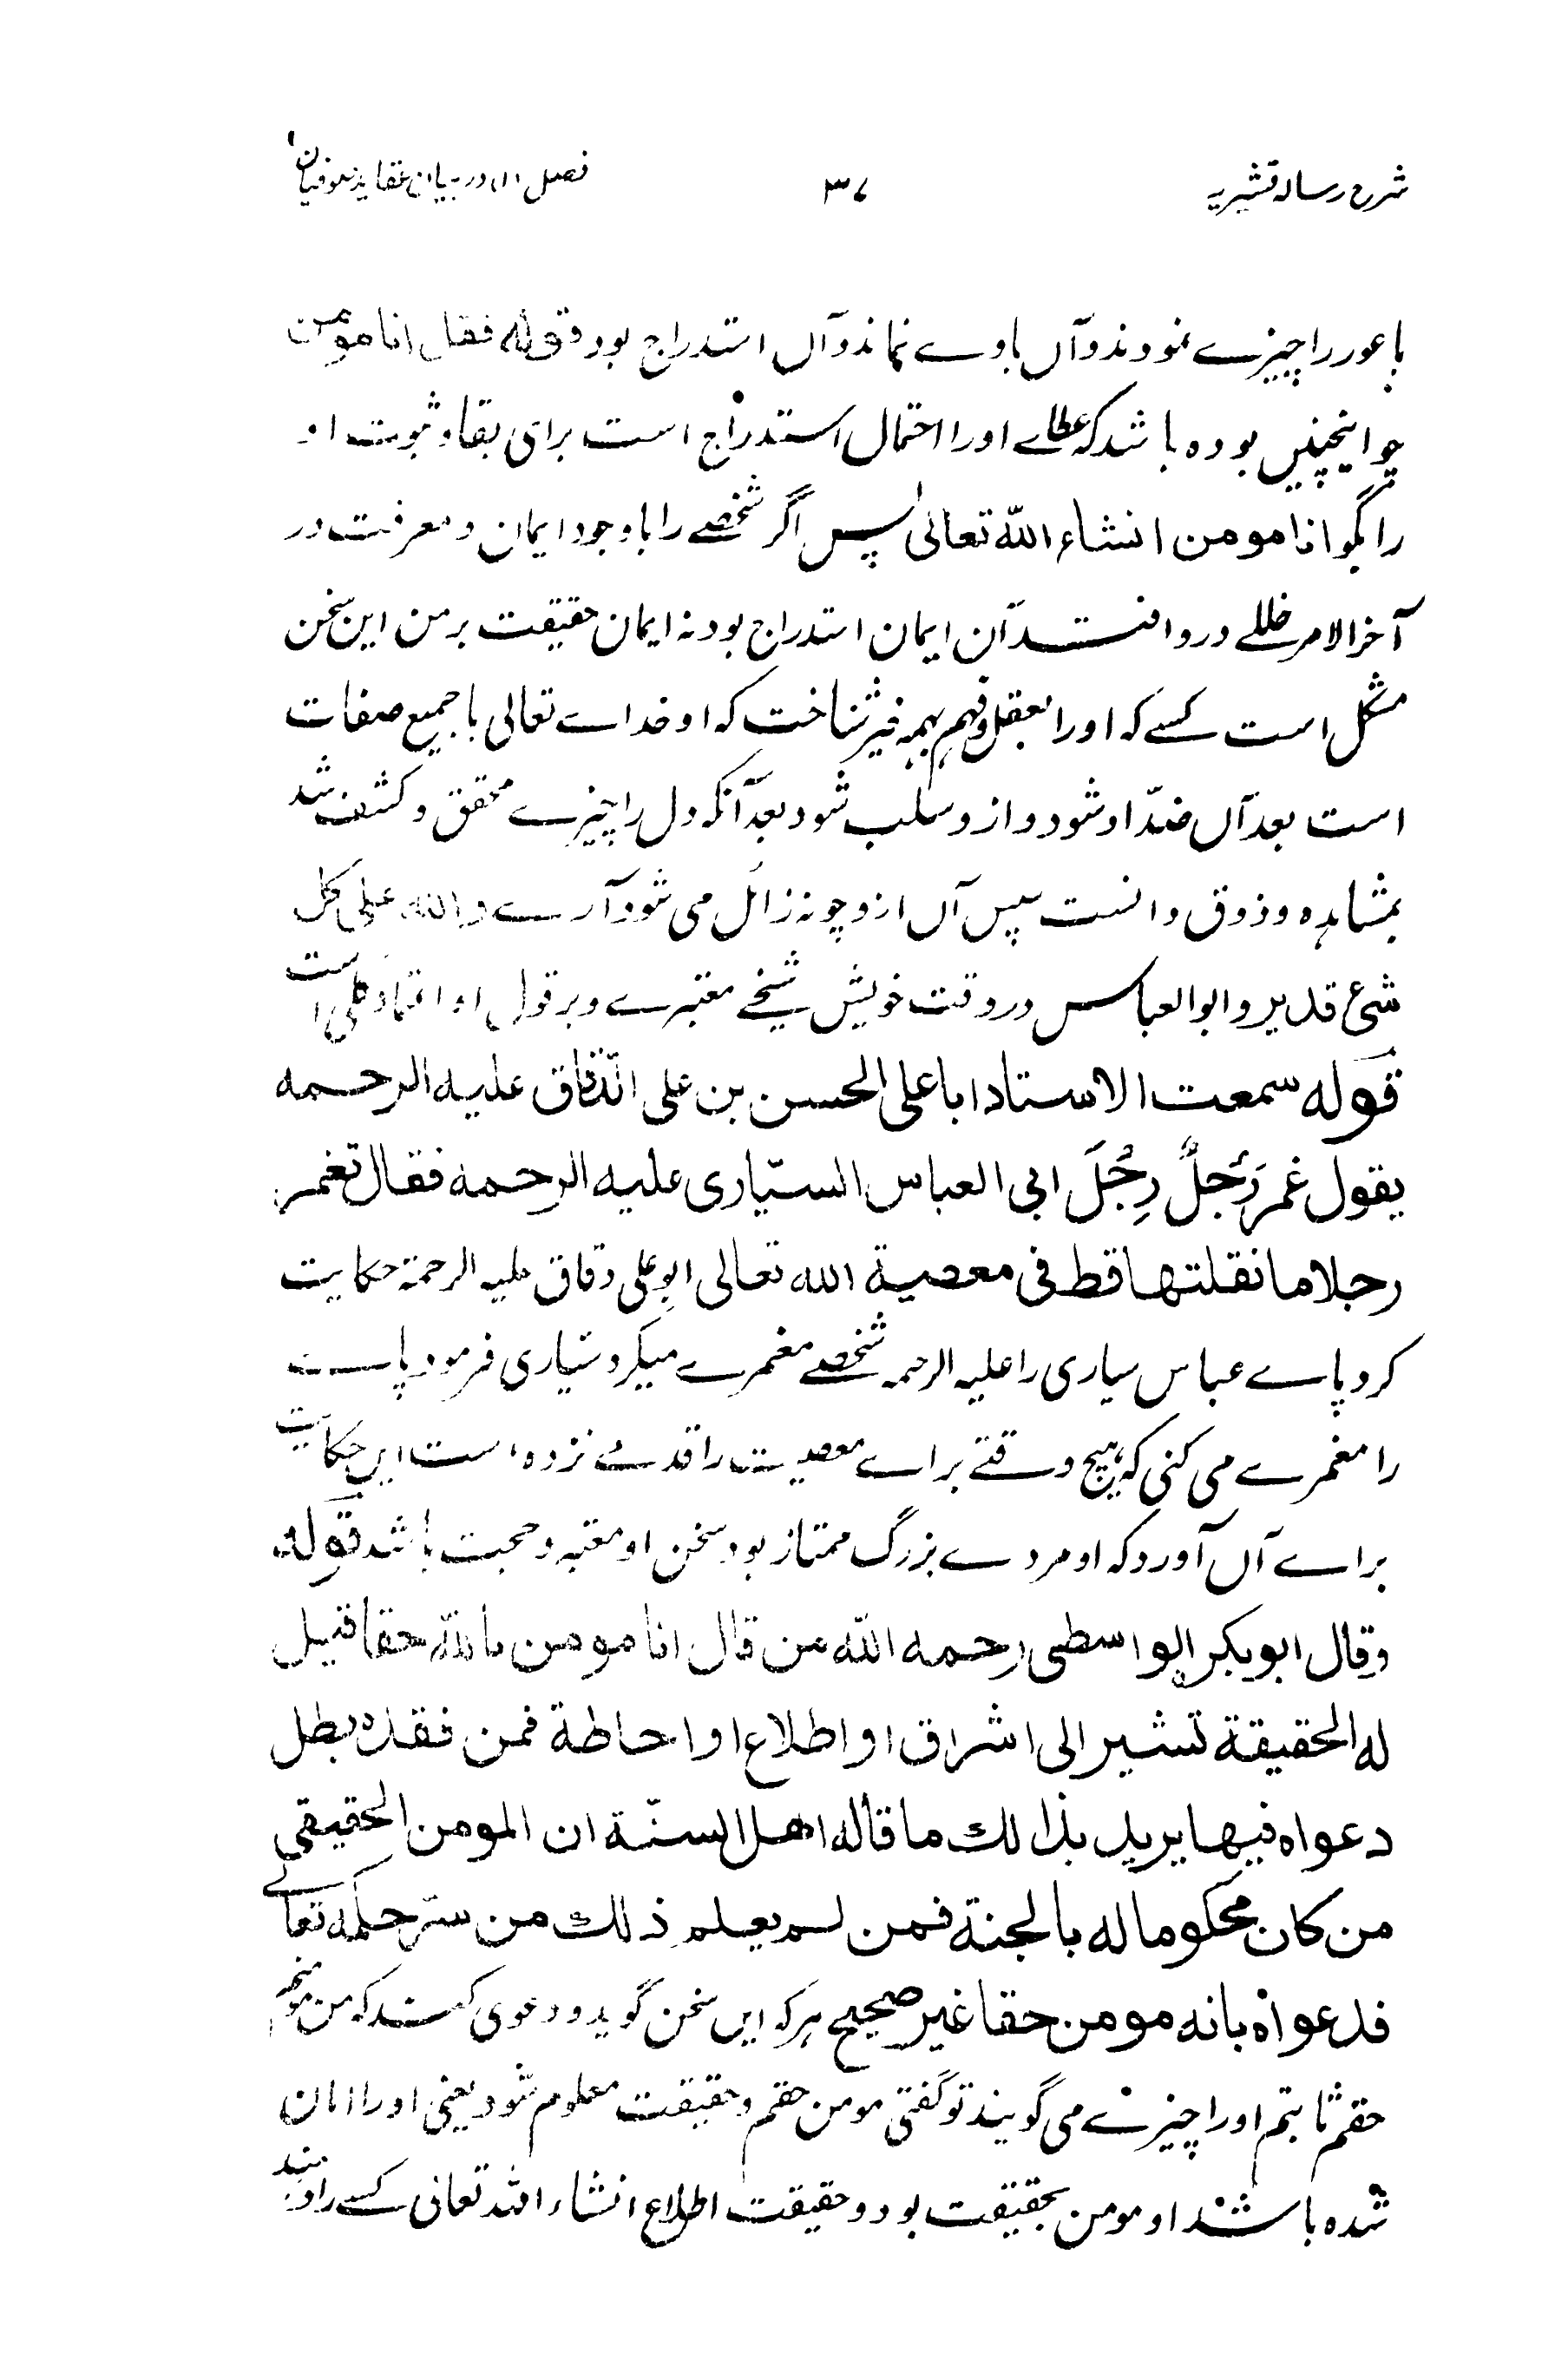 شرح رساله قشیریه ۳۷ فصل (۱) در بیان عقاید صوفیان
باعور را چیزے نمودند و آں باوے نماند و آں استدراج بود قوله فقل انا مومن
چو اینچنیں بوده باشد که عطاے او را احتمال استدراج است برای بقا و ثبوت او
را بگو انا مومن انشاء الله تعالیٰ پس اگر شخصے را با وجود ایمان و معرفت در
آخر الامر خللے درو افتد آن ایمان استدراج بود نه ایمان حقیقت بر من این سخن
مشکل است کسے که او را بعقل و فهم بهمه خیر شناخت که او خداے تعالی با جمیع صفات
است بعد آں ضدّ او شود و ازو سلب شود بعد آنکه دل را چیزے محقق و کشف شد
بمشاهده و ذوق دانست سپس آں ازو چونه زائل می شود آرے والله علی کل
شئ قدیر و ابوالعباس در وقت خویش شیخے معتبرے و بر قول او اعتماد کلی است
قوله سمعت الاستاد اباعلی الحسن بن علی الدّقاق علیه الرحمه
یقول غمر رَجُلٌ رِجُلَ ابی العباس السیّاری علیه الرحمه فقال تغمر
رجلا ما نقلتها قط فی معصیة الله تعالی ابو علی دقاق علیه الرحمة حکایت
کرد پاے عباس سیاری را علیه الرحمه شخصے مغمرے میکرد سیّاری فرمود پاے
را مغمرے می کنی که هیچ وقتے براے معصیت را قدمے نزده است ایں حکایت
براے آں آورد که او مردے بزرگ ممتاز بود سخن او معتبر و حجت باشد قوله
وقال ابوبکر الواسطی رحمه الله من قال انا مومن بالله حقا قیل
له الحقیقة تشیر الی اشراق او اطلاع او احاطة فمن فقده بطل
دعواه فیها یرید بذالك ما قاله اهل السنّة ان المومن الحقیقی
من کان محکوما له بالجنة فمن لم یعلم ذلك من سرّ حکمه تعالے
فدعواه بانه مومن حقا غیر صحیح هرکه ایں سخن گوید و دعوی کند که من مومنم
حقم ثابتم او را چیزے می گویند تو گفتی مومن حقم و حقیقت معلوم شود یعنی او را امان
شده باشد او مومن بحقیقت بود و حقیقت اطلاع انشاء الله تعالی کسے را